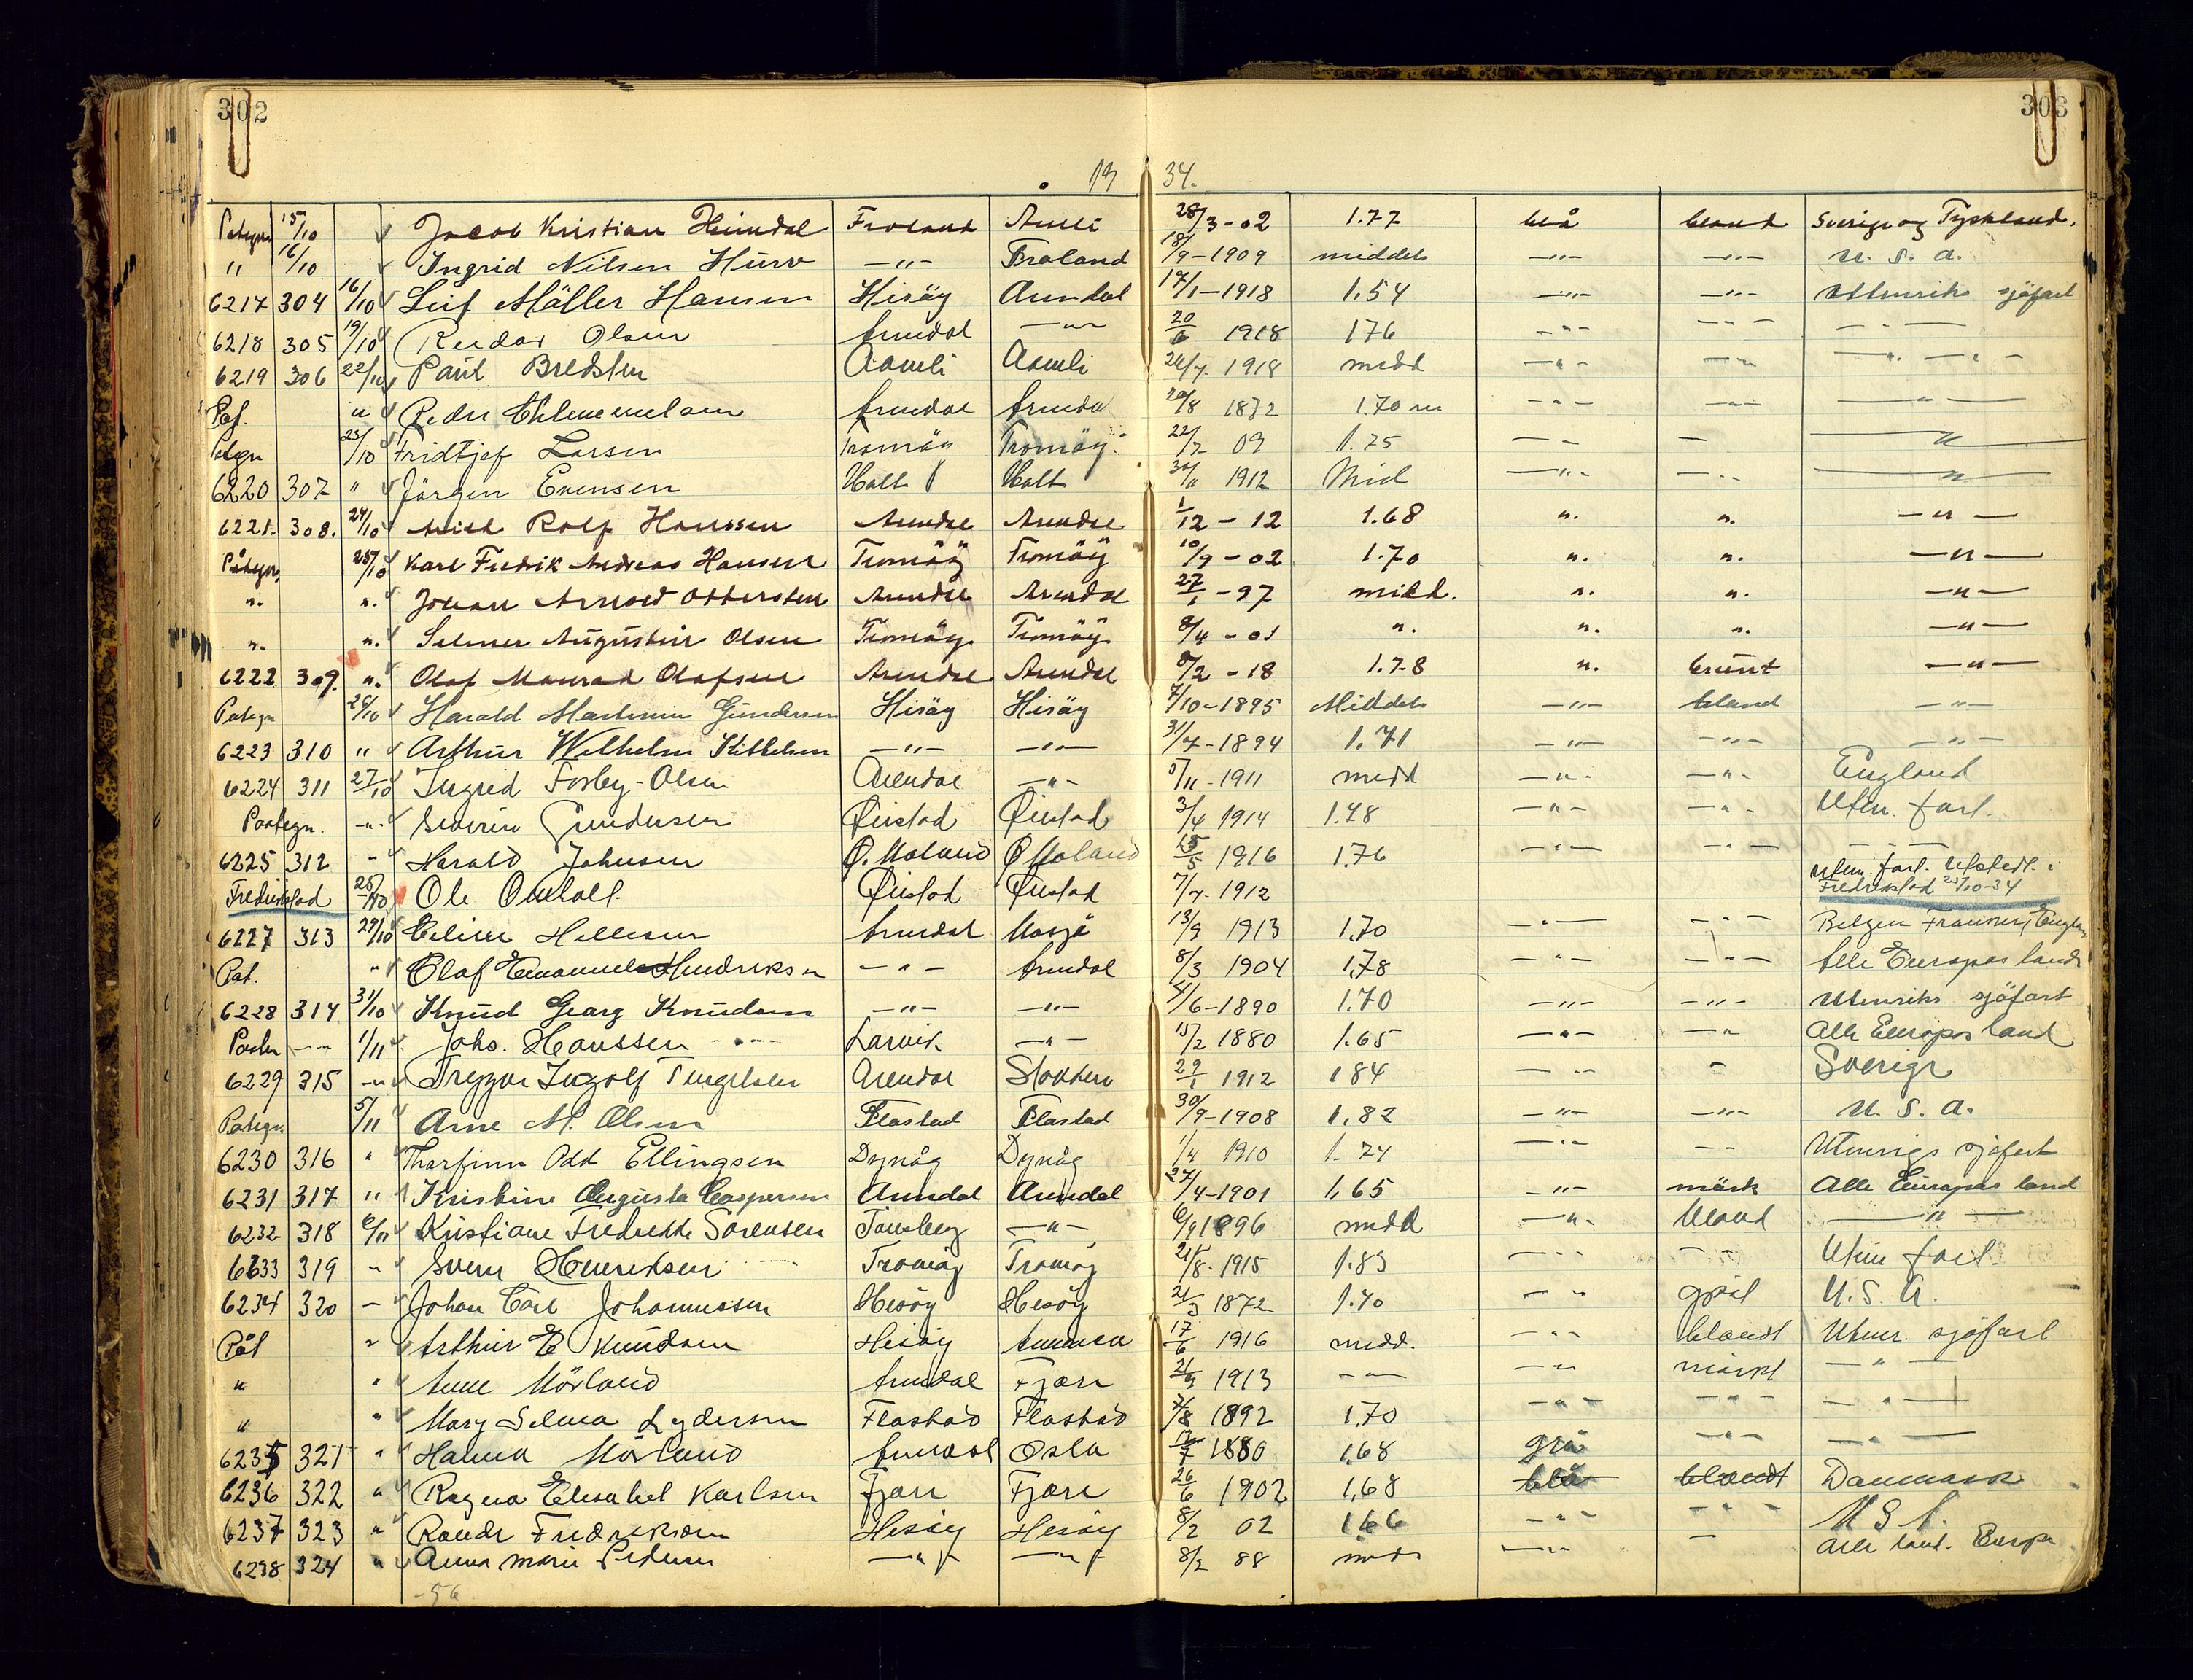 302 303
19 34.
Paategn 15/10 Jacob Kristian Heimdal Froland Amli 28/3-02 1.77 blå bland Sverige og Tyskland.
" 16/10 Ingrid Nilsen Hurv —"— Froland 18/9-1909 middels —"— —"— U. S. A.
6217 304 16/10 Leif Möller Hansen Hisöy Arendal 17/1-1918 1.54 —"— —"— Utenriks sjöfart
6218 305 19/10 Reidar Olsen Arendal —"— 20/6 1918 176 —"— —"— —"—
6219 306 22/10 Paul Bredsten Aamli Aamli 26/7 1918 midd —"— —"— —"— —"—
Paf. " Peder Arendal Arendal 20/8 1872 1.70 m —"— —"— —"—
Pategn 23/10 Fridtjof Larsen Tromöy Tromöy 22/7 09 1.75 — — — —"—
6220 307 " Jörgen Evensen Holt Holt 30/11 1912 Mid —"— — —"—
6221. 308. 24/10 Rolf Hanssen Arendal Arendal 1/12 - 12 1.68 ". ". —"—
Påtegn. 25/10 Karl Fredrik Andreas Hansen Tromöy Tromöy 10/9 - 02 1.70 ". ". —"—
". ". Johan Arnold Ottersten Arendal Arendal 27/1 - 97 midd. ". ". —"—
". ". Selmer Augustin Olsen Tromöy Tromöy 8/4 - 01 ". ". ". —"—
6222 309. ". Olaf Monrad Olafsen Arendal Arendal 8/2 - 18 1.78 ". brunt —"—
Pategn 26/10 Harald Martinius Gundersen Hisöy Hisöy 7/10-1895 Middels —"— bland —"—
6223 310 " Arthur Wilhelm Kittelsen —"— —"— 31/7-1894 1.71 —"— —"— —"—
6224 311 27/10 Ingrid Fosby-Olsen Arendal —"— 5/11-1911 midd —"— —"— England
Paategn. —"— Severin Gundersen Öiestad Öiestad 3/4 1914 1.78 —"— —"— Uten. fart.
6225 312 " Harald Johnsen Ö. Moland Ö Moland 15/5 1916 1.76 —"— —"—
Fredrikstad 25/10 Ole Omholt Öiestad Öiestad 7/7-1912 Uten. fart. Utstedt. i Fredrikstad 25/10-34
6227 313 29/10 Hellesen Arendal 13/9 1913 1.70 —"— —"— Belgien Frankrig England
Pat. " Olaf Emanuel Hendriksen —"— Arendal 8/3 1904 1.78 —"— —"— Alle Europas land
6228 314 31/10 Knud Georg Knudsen —"— —"— 4/6-1890 1.70 —"— —"— Utenriks sjöfart
1/11 Johs. Hanssen Larvik —"— 15/2 1880 1.65 —"— —"— Alle Europas land
6229 315 —"— Trygve Ingolf Arendal Stokken 29/1 1912 184 — "— " Sverige
Pategn. 5/11 Arne M. Olsen Flostad Flostad 30/9-1908 1.82 —"— —"— U. S. A.
6230 316 " Thorfinn Odd Ellingsen Dypvåg Dypvåg 1/4 1910 1.74 —"— — — Utenrigs sjöfart
6231 317 " Kristine Augusta Caspersen Arendal Arendal 27/4-1901 1,65 —"— mörk Alle Europas land
6232 318 6/11 Kristiane Fredrikke Sörensen Tönsberg —"— 6/9 1896 midd —"— bland —"—
6633 319 " Sven Henriksen Tromöy Tromöy 21/8-1915 1.83 — — — — Uten fart
6234 320 — Johan Carl Johannessen Hesöy Hesöy 21/3 1872 1.70 — " gråt U. S. A.
Påt " Arthur E Knudsen Hisöy 17/6 1916 midd. —"— blandt Utenr. sjöfart
" " Anne Mörland Arendal Fjære 21/9 1913 —"— —"— mörkt —"—
" " Mary Selma Lydersen Flostad Flostad 7/8 1892 1.70 —"— —"— —"—
6235 321 " Halma Mörland Arendal Oslo 12/7 1880 1,68 grå —"— —"—
6236 322 " Ragna Elisabet Karlsen Fjære Fjære 26/6 1902 1,68 blå blandt Danmark
6237 323 " Fredriksen Hesöy Hesöy 8/2 02 1.66 —"— —"— U S A.
6238 324 " Anna Marie Pedersen —"— —"— 8/2 88 midd —"— — Alle land. Europa
-56